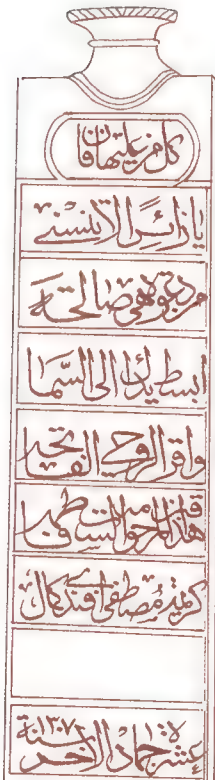 كل من عليها فان
يا زائرا لا تنسني
من دعوة هي صالحة
ابسط يديك الى السما
واقرا لروحي الفاتحة
هذا قبر المرحومة الست فاطمة
كريمة مصطفى افندي كمال
عشرة جماد الاخر سنة ١٣٠٧